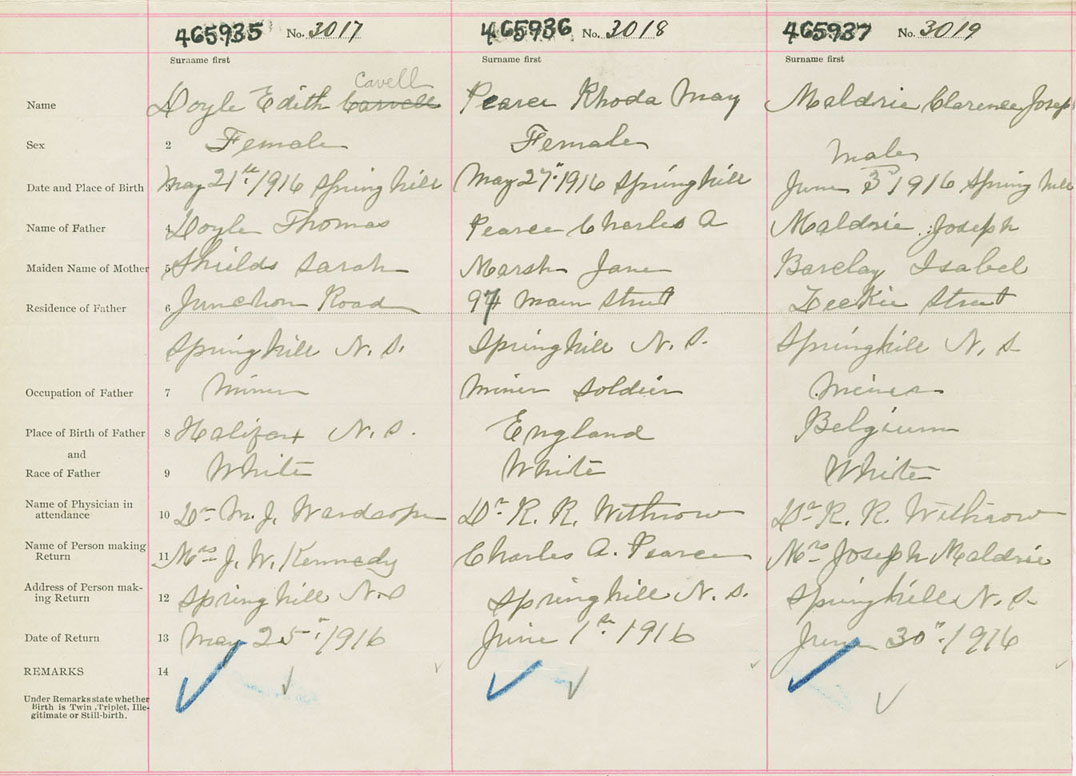 465935 No. 3017 465936 No. 3018 465937 No. 3019
Surname first Surname first Surname first
Cavell
Name Doyle Edith Carvell Pearce Rhoda May Maldrie Clarence Joseph
Sex 2 Female Female Male
Date and Place of Birth 3 May 21st 1916 Spring hill May 27th 1916 Springhill June 3rd 1916 Spring hill
Name of Father 4 Doyle Thomas Pearce Charles A Maldrie Joseph
Maiden Name of Mother 5 Shields Sarah Marsh Jane Barclay Isabel
Residence of Father 6 Junction Road 97 Main Street Street
Springhill N. S. Springhill N. S. Springhill N. S
Occupation of Father 7 Miner Miner Soldier Miner
Place of Birth of Father 8 Halifax N. S. England Belgium
and
Race of Father 9 White White White
Name of Physician in
attendance 10 Dr M. J. Wardrope Dr R. R. Withrow Dr R. R. Withrow
Name of Person making
Return 11 Mrs J. W. Kennedy Charles A. Pearce Mrs Joseph Maldrie
Address of Person mak-
ing Return 12 Springhill N.S Springhill N. S. Springhill N. S.
Date of Return 13 May 25th 1916 June 1st 1916 June 30th 1916
REMARKS 14
Under Remarks state whether
Birth is Twin, Triplet, Ille-
gitimate or Still-birth.